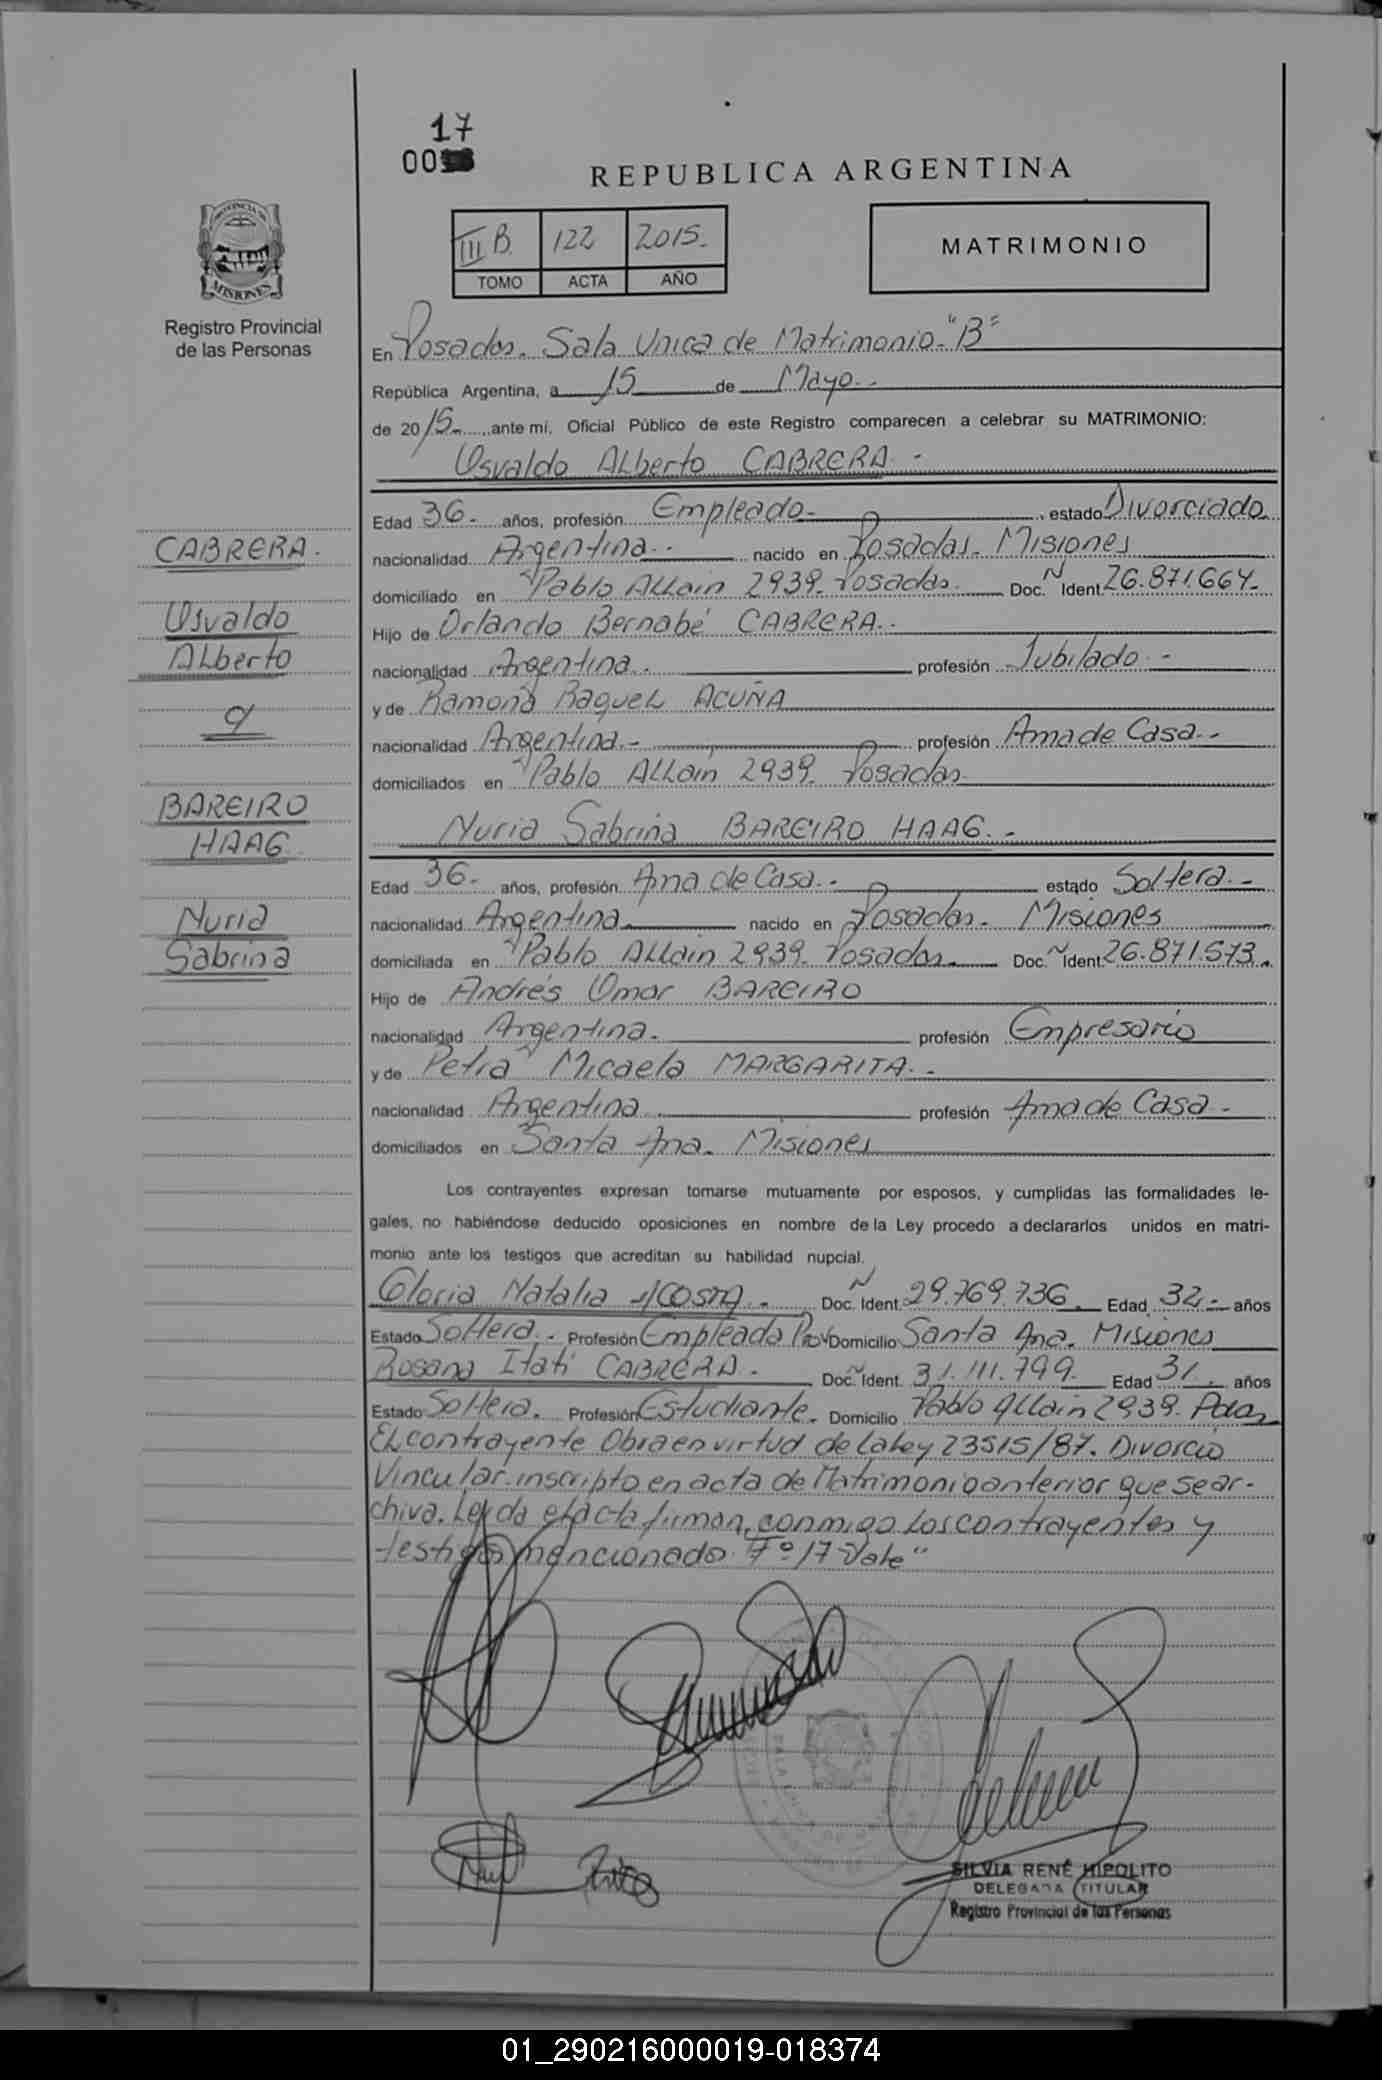 17
00
REPUBLICA ARGENTINA
PROVINCIA DE
MISIONES
Registro Provincial
de las Personas
III B. 122 2015.
TOMO ACTA AÑO
MATRIMONIO
En Posadas. Sala Unica de Matrimonio "B"
República Argentina, a 15 de Mayo.-
de 2015.- ante mí, Oficial Público de este Registro comparecen a celebrar su MATRIMONIO:
Osvaldo Alberto CABRERA.-
Edad 36.- años, profesión Empleado.- estado Divorciado
nacionalidad Argentina.- nacido en Posadas. Misiones
domiciliado en Pablo Allain 2939. Posadas. Doc. N Ident 26.871.664.-
Hijo de Orlando Bernabé CABRERA.-
nacionalidad Argentina.- profesión Jubilado.-
y de Ramona Raquel ACUÑA
nacionalidad Argentina.- profesión Ama de Casa.-
domiciliados en Pablo Allain 2939. Posadas
Nuria Sabrina BAREIRO HAAG.-
Edad 36.- años, profesión Ama de Casa.- estado Soltera.-
nacionalidad Argentina nacido en Posadas. Misiones
domiciliada en Pablo Allain 2939. Posadas. Doc. N Ident 26.871.573.
Hijo de Andrés Omar BAREIRO
nacionalidad Argentina. profesión Empresario
y de Petra Micaela MARGARITA.-
nacionalidad Argentina profesión Ama de Casa.-
domiciliados en Santa Ana. Misiones
CABRERA.
Osvaldo
Alberto
BAREIRO
HAAG
Nuria
Sabrina
Los contrayentes expresan tomarse mutuamente por esposos, y cumplidas las formalidades le-
gales, no habiéndose deducido oposiciones en nombre de la Ley procedo a declararlos unidos en matri-
monio ante los testigos que acreditan su habilidad nupcial.
Gloria Natalia ACOSTA.- Doc. N Ident. 29.769.736. Edad 32.- años
Estado Soltera.- Profesión Empleada Prov Domicilio Santa Ana. Misiones
Rosana Itatí CABRERA.- Doc. N Ident. 31.111.799. Edad 31. años
Estado Soltera. Profesión Estudiante. Domicilio Pablo Allain 2939. Pdas
El contrayente Obra en virtud de la Ley 23515/87. Divorcio
Vincular inscripto en acta de Matrimonio anterior que se ar-
chiva. Leyda el acta firman, conmigo los contrayentes y
testigos mencionado. Fº 17 Vale"
SILVIA RENÉ HIPOLITO
DELEGADA TITULAR
Registro Provincial de las Personas
01_290216000019-018374